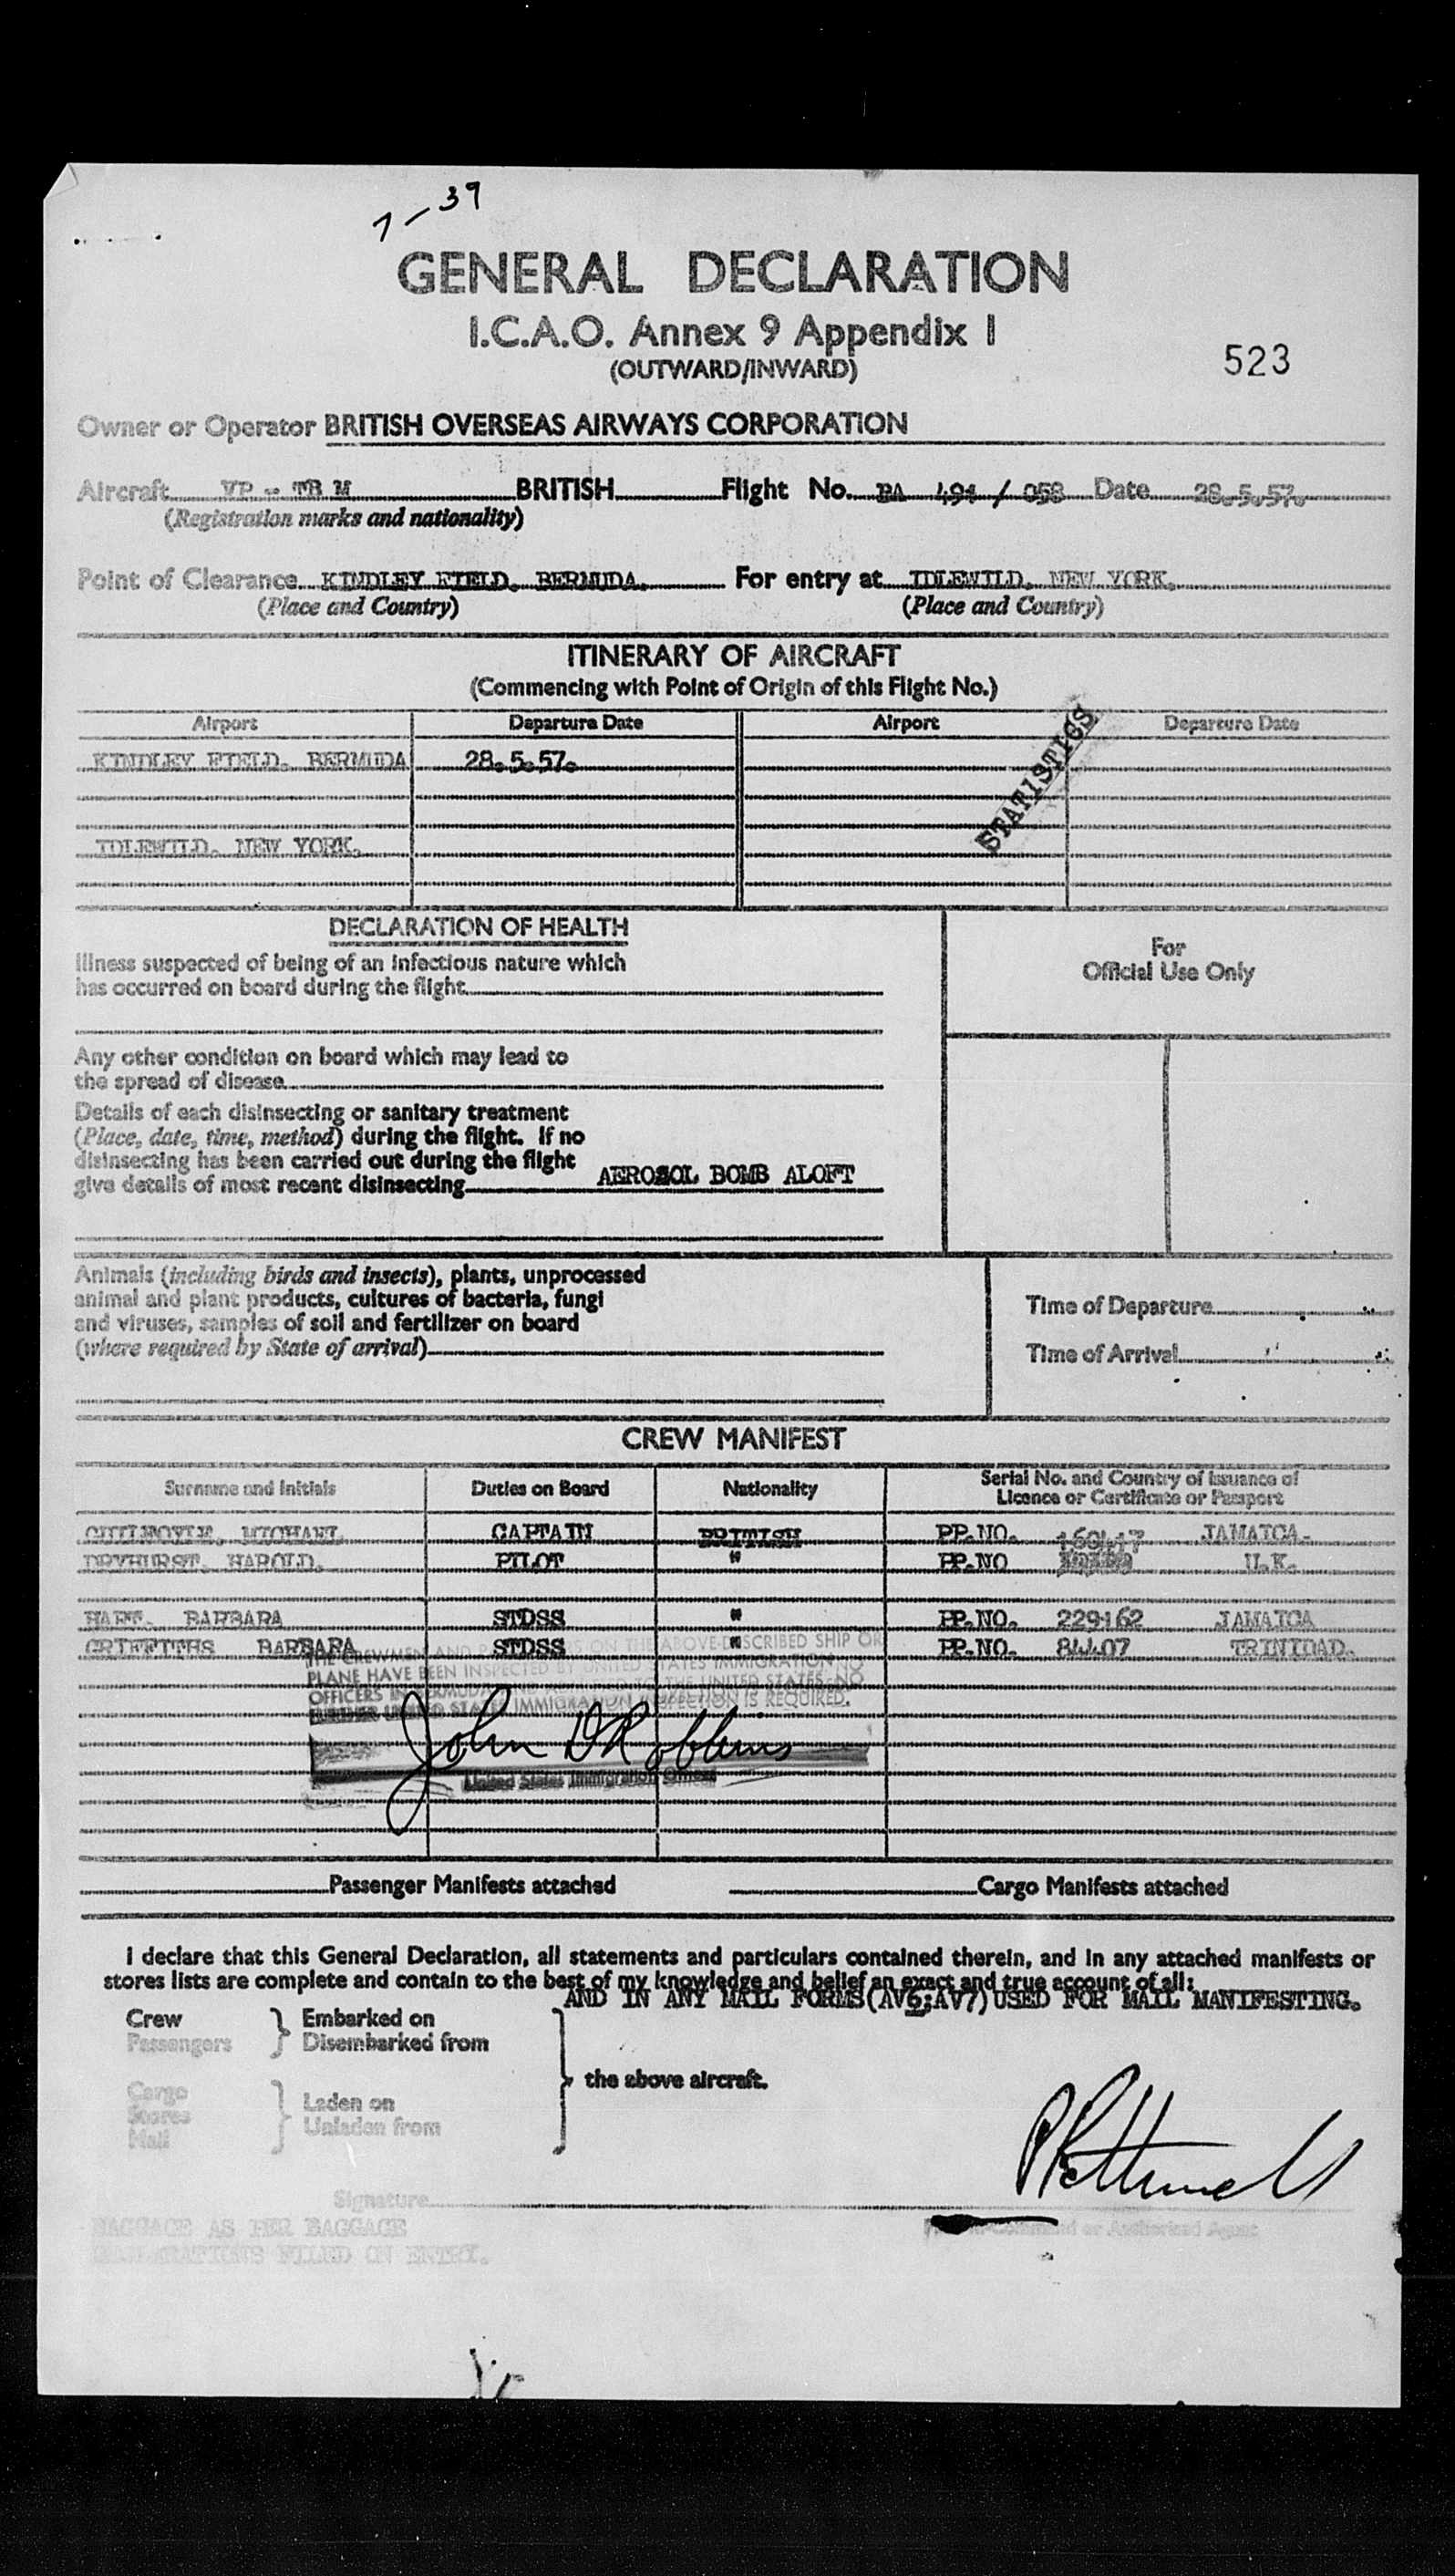 7-39
GENERAL DECLARATION
I.C.A.O. Annex 9 Appendix I
(OUTWARD/INWARD)
523
Owner or Operator BRITISH OVERSEAS AIRWAYS CORPORATION
Aircraft VP - TB M BRITISH Flight No. BA 494 / 058 Date 28.5.57.
(Registration marks and nationality)
Point of Clearance KINDLEY FIELD, BERMUDA. For entry at IDLEWILD, NEW YORK.
(Place and Country) (Place and Country)
ITINERARY OF AIRCRAFT
(Commencing with Point of Origin of this Flight No.)
Airport Departure Date Airport Departure Date
STATISTICS
KINDLEY FIELD. BERMUDA 28.5.57.
IDLEWILD. NEW YORK.
DECLARATION OF HEALTH
Illness suspected of being of an infectious nature which
has occurred on board during the flight
For
Official Use Only
Any other condition on board which may lead to
the spread of disease
Details of each disinsecting or sanitary treatment
(Place, date, time, method) during the flight. If no
disinsecting has been carried out during the flight
give details of most recent disinsecting AEROSOL BOMB ALOFT
Animals (including birds and insects), plants, unprocessed
animal and plant products, cultures of bacteria, fungi
and viruses, samples of soil and fertilizer on board
(where required by State of arrival)
Time of Departure
Time of Arrival
CREW MANIFEST
Surname and Initials Duties on Board Nationality Serial No. and Country of Issuance of
Licence or Certificate or Passport
MICHAEL CAPTAIN BRITISH PP.NO. JAMAICA.
DRYHURST, HAROLD. PILOT " PP.NO U.K.
HART. BARBARA STDSS " PP.NO. 229162 JAMAICA
GRIFFITHS BARBARA STDSS " PP.NO. 84407 TRINIDAD.
THE CREWMEN AND ON THE ABOVE-DESCRIBED SHIP OR
PLANE HAVE BEEN INSPECTED BY UNITED STATES IMMIGRATION
OFFICERS IN BERMUDA AND ADMITTED TO THE UNITED STATES. NO
FURTHER UNITED STATES IMMIGRATION INSPECTION IS REQUIRED.
John D Robbins
United States Immigration Officer
Passenger Manifests attached Cargo Manifests attached
I declare that this General Declaration, all statements and particulars contained therein, and in any attached manifests or
stores lists are complete and contain to the best of my knowledge and belief an exact and true account of all:
AND IN ANY MAIL FORMS(AV6;AV7)USED FOR MAIL MANIFESTING.
Crew Embarked on
Passengers Disembarked from
the above aircraft.
Cargo Laden on
Stores Unladen from
Mail
Signature
BAGGAGE AS PER BAGGAGE
DECLARATIONS FILED ON ENTRY.
in-Command or Authorised Agent